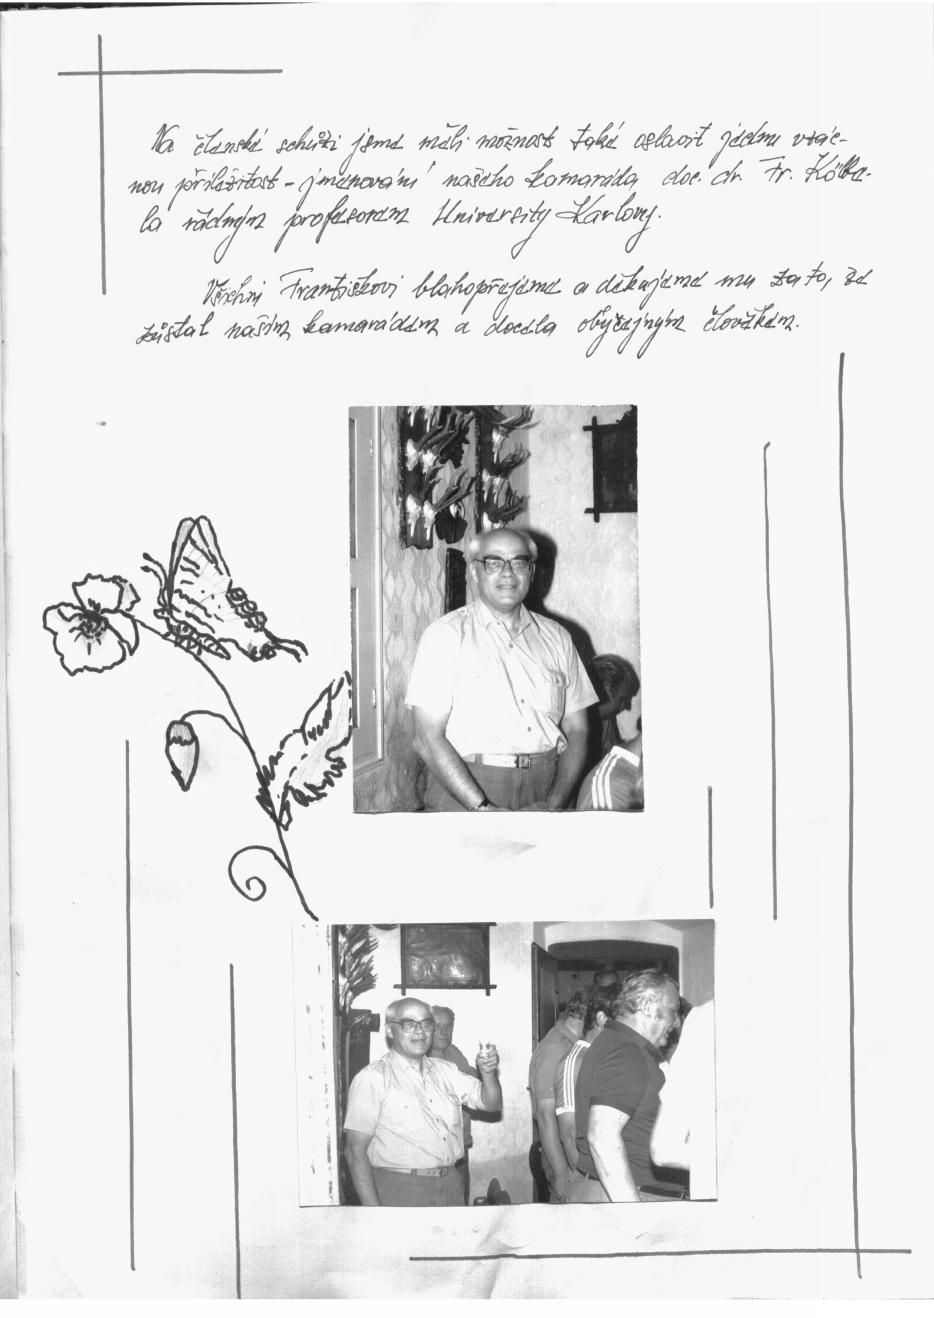 Na členské schůzi jsme měli možnost také oslavit jednu vzác-
nou příležitost - jmenování našeho kamaráda doc. dr. Fr. Kölbe-
la řádným profesorem University Karlovy.
Všichni Františkovi blahopřejeme a děkujeme mu za to, že
zůstal naším kamarádem a docela obyčejným člověkem.